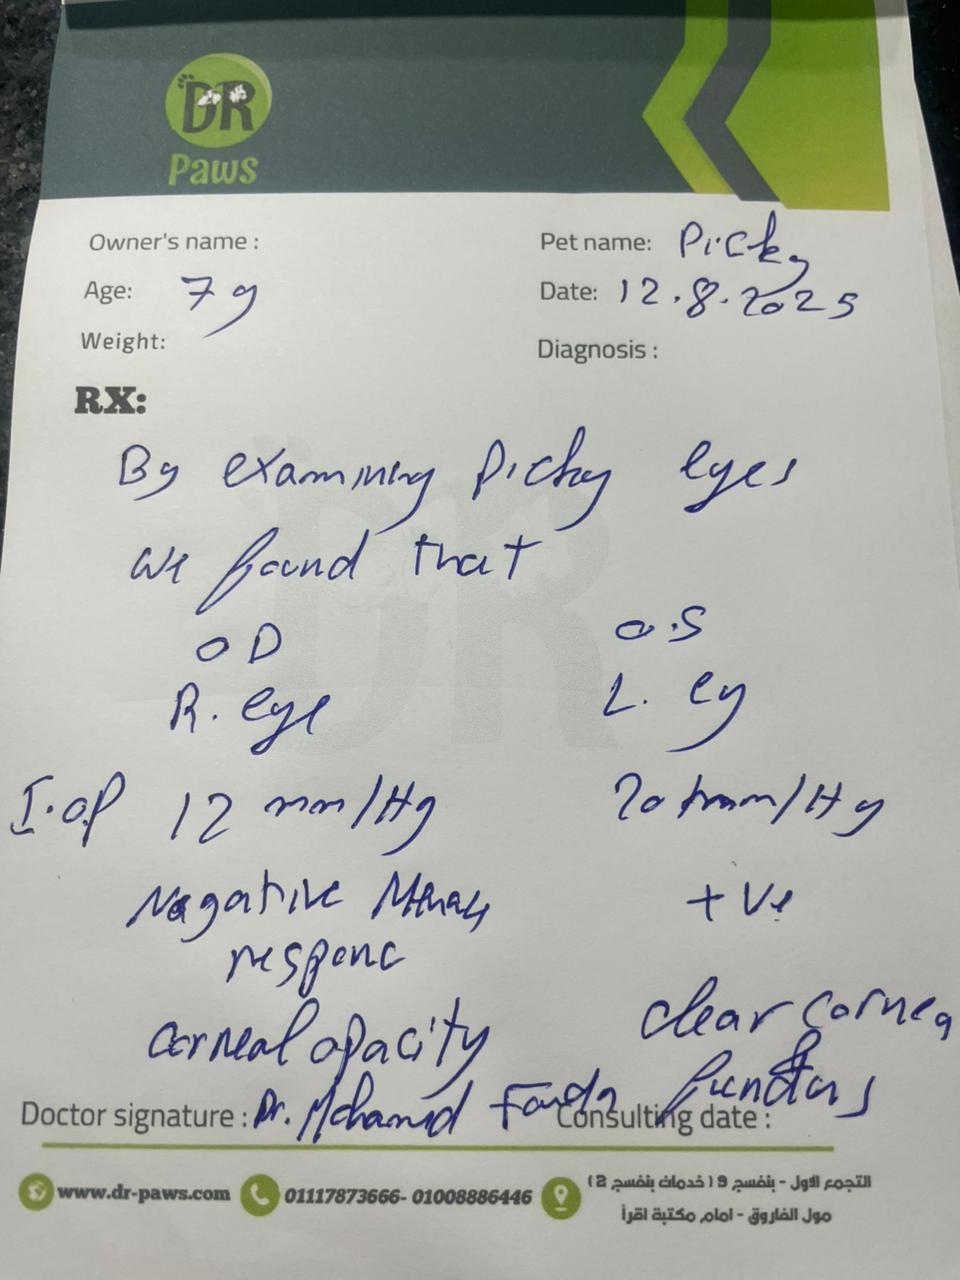 DR
Paws
Owner's name :
Pet name: Picky
Age: 7y
Date: 12.8.2025
Weight:
Diagnosis :
RX:
By examining Picky eyes
we found that
OD O.S
R. eye L. ey
I.O.P 12 mm/Hg 20 mm/Hg
Negative responc +ve
corneal opacity clear cornea
fundus
Doctor signature : Dr. Mohamed Consulting date :
www.dr-paws.com 01117873666- 01008886446
التجمع الاول - بنفسج 9 (خدمات بنفسج 2)
مول الفاروق - امام مكتبة اقرأ